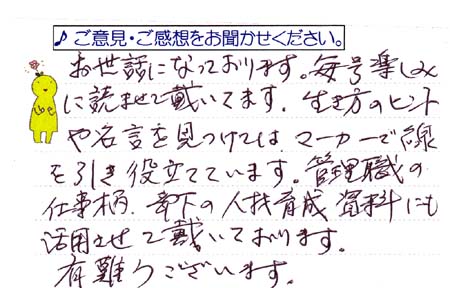 ♪ご意見・ご感想をお聞かせください。
お世話になっております。毎号楽しみ
に読ませて戴いてます。生き方のヒント
や名言を見つけては、マーカーで線
を引き役立てています。管理職の
仕事柄、部下の人材育成資料にも
活用させて戴いております。
有難うございます。